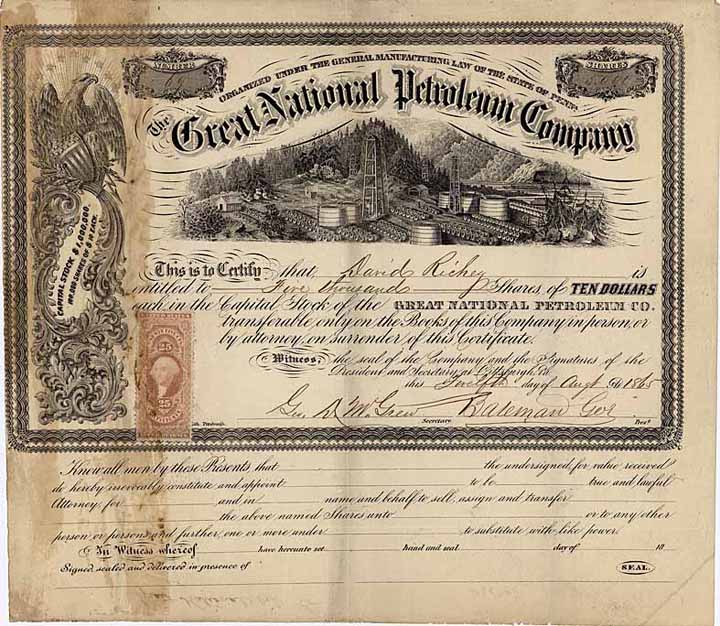 NUMBER
7
SHARES
ORGANIZED UNDER THE GENERAL MANUFACTURING LAW OF THE STATE OF PENNA.
The Great National Petroleum Company
CAPITAL STOCK $1,000,000.
100,000 SHARES OF $10 EACH.
This is to Certify that David Richey is
entitled to Five thousand Shares of TEN DOLLARS
each in the Capital Stock of the GREAT NATIONAL PETROLEUM CO.
transferable only on the Books of this Company in person, or
by attorney, on surrender of this Certificate.
Witness, the seal of the Company and the Signatures of the
President and Secretary at Pittsburgh, Pa
this Twelfth day of Augt 1865
25 25
Geo. D. McGrew Bateman Goe
Secretary Prest.
Pittsburgh.
Know all men by these Presents, that the undersigned, for value received
do hereby irrevocably constitute and appoint to be true and lawful
Attorney for and in name and behalf to sell, assign and transfer
the above named Shares unto or to any other
person or persons and further, one or more under to substitute with like power.
In Witness whereof have hereunto set hand and seal day of 18
Signed sealed and delivered in presence of
SEAL.